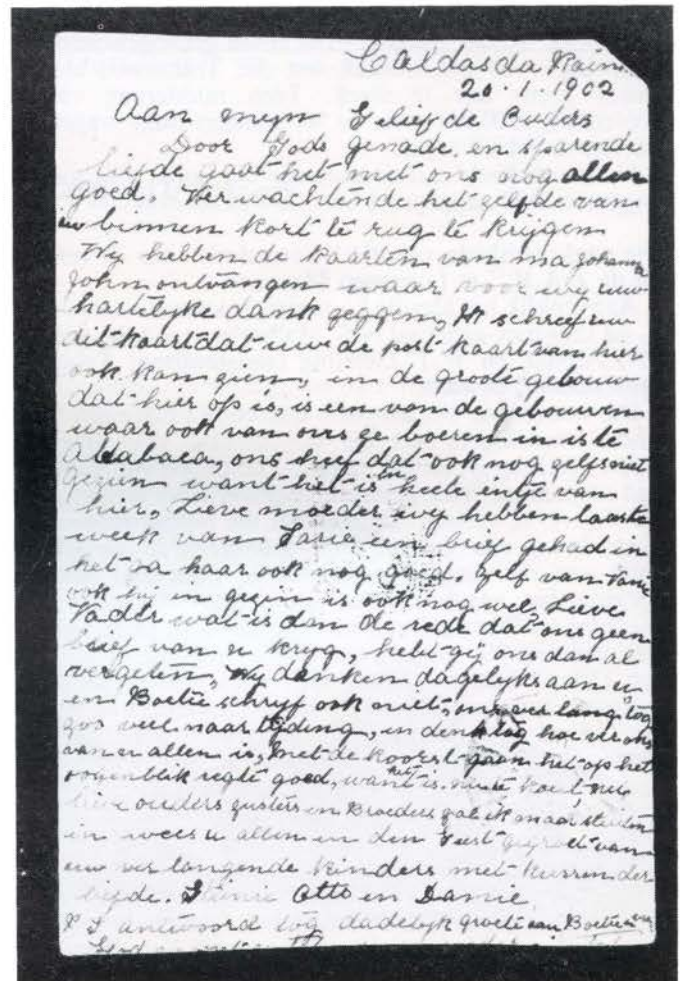 Caldas da Rain
20.1.1902
Aan mijn Geliefde Ouders
Door Gods genade en sparende
liefde gaat het met ons nog allen
goed. Verwachtende het zelfde van
uw binnen kort te rug te krijgen
Wij hebben de kaarten van ma Johanna
John ontvangen waar voor wij uw
hartelijke dank zeggen, Ik schreef uw
dit kaart dat uwe de post kaart van hier
ook kan zien, in de groote gebouw
dat hier op is, is een van de gebouwen
waar ook van ons ge boeren in is te
Alabaca, ons heef dat ook nog zelfs niet
gezien want het is heele eintje van
hier, Lieve moeder wij hebben laaste
week van Sarie een brief gehad in
het ga haar ook nog goed. zelf van
ook hij in gezin is ook nog wel, Lieve
Vader wat is dan de rede dat ons geen
brief van u kryg, hebt gij ons dan al
vergeten, Wij danken dagelyks aan u
en Boetie schryf ook niet, ons ver lang tog
zoo veel naar tyding, in denk tog hoe ver ons
van u allen is, met de koorst gaan het op het
oogenblik regte goed, want het is niet te koud, nu
lieve ouders zusters en Broeders zal ik maar sluiten
in wees u allen in den Geest gegroet van
uw ver langende kinders met kussen der
liefde. Otto en Danie
P S antwoord tog dadelyk groete aan Boetie
God